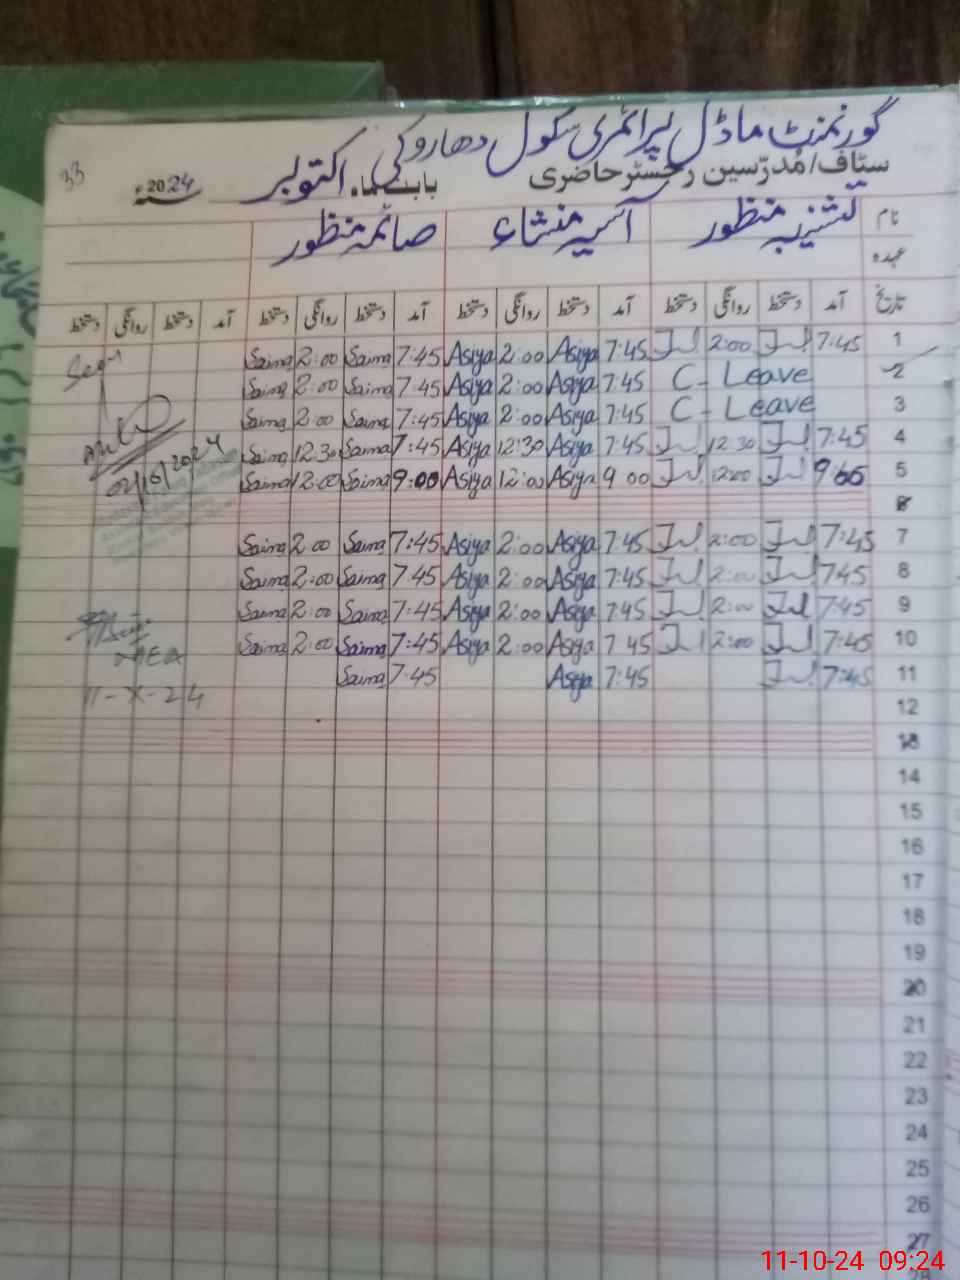 گورنمنٹ ماڈل پرائمری سکول دھاروکی
33
سٹاف/مُدرّسین رجسٹر حاضری بابت ماہ اکتوبر 2024ء
نام منظور آسیہ منشاء صائمہ منظور
عہدہ
تاریخ آمد دستخط روانگی دستخط آمد دستخط روانگی دستخط آمد دستخط روانگی دستخط آمد دستخط روانگی دستخط
Saima 2:00 Saima 7:45 Asiya 2:00 Asiya 7:45 2:00 7:45 1
Saima 2:00 Saima 7:45 Asiya 2:00 Asiya 7:45 C - Leave 2
Saima 2:00 Saima 7:45 Asiya 2:00 Asiya 7:45 C - Leave 3
Saima 12:30 Saima 7:45 Asiya 12:30 Asiya 7:45 12:30 7:45 4
Saima 12:00 Saima 9:00 Asiya 12:00 Asiya 9 00 12:00 9:00 5
6
Saima 2:00 Saima 7:45 Asiya 2:00 Asiya 7:45 2:00 7:45 7
Saima 2:00 Saima 7 45 Asiya 2:00 Asiya 7:45 2:00 7 45 8
Saima 2:00 Saima 7:45 Asiya 2:00 Asiya 7:45 2:00 7:45 9
Saima 2:00 Saima 7:45 Asiya 2:00 Asiya 7 45 2:00 7:45 10
Saima 7:45 Asiya 7:45 7:45 11
Seen
02/10/2024
MEA
11-X-24
12
13
14
15
16
17
18
19
20
21
22
23
24
25
26
27
28
11-10-24 09:24